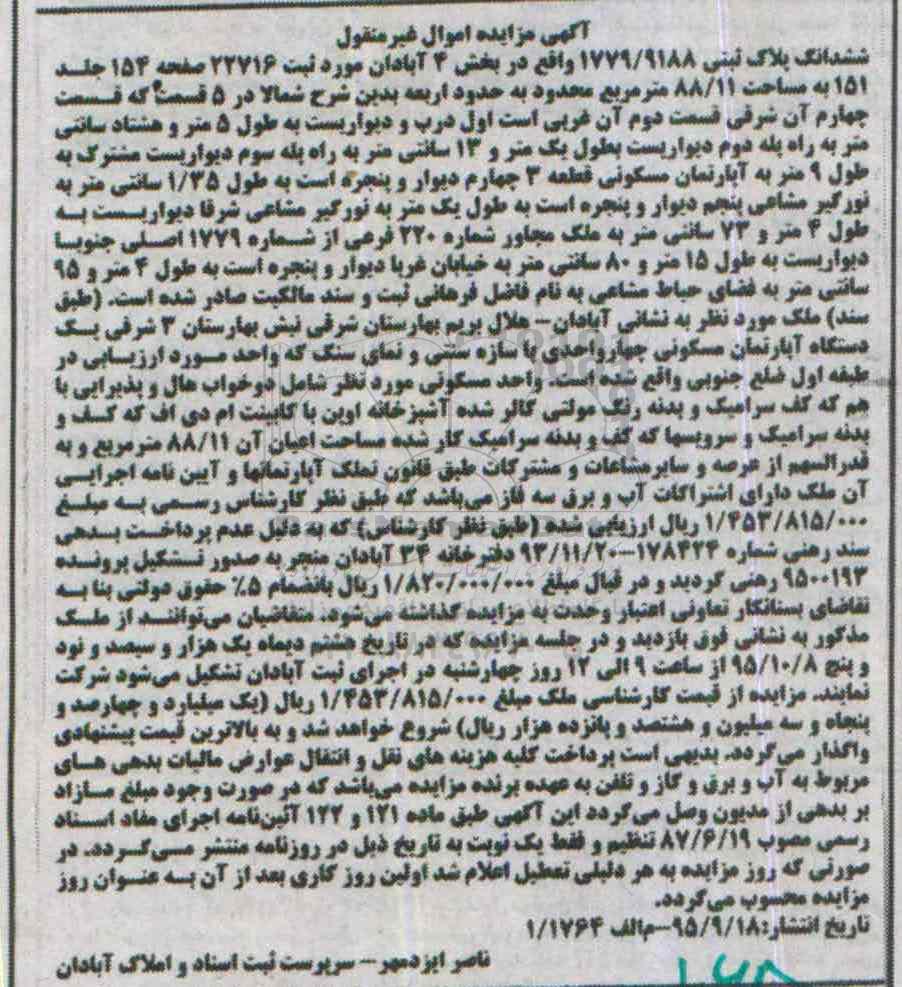 آگهی مزایده اموال غیرمنقول
ششدانگ پلاک ثبتی ۱۷۷۹/۹۱۸۸ واقع در بخش ۴ آبادان مورد ثبت ۲۲۷۱۶ صفحه ۱۵۴ جلد
۱۵۱ به مساحت ۸۸/۱۱ مترمربع محدود به حدود اربعه بدین شرح شمالا در ۵ قسمت که قسمت
چهارم آن شرقی قسمت دوم آن غربی است اول درب و دیواریست به طول ۵ متر و هشتاد سانتی
متر به راه پله دوم دیواریست بطول یک متر و ۱۳ سانتی متر به راه پله سوم دیواریست مشترک به
طول ۹ متر به آپارتمان مسکونی قطعه ۳ چهارم دیوار و پنجره است به طول ۱/۳۵ سانتی متر به
نورگیر مشاعی پنجم دیوار و پنجره است به طول یک متر به نورگیر مشاعی شرقا دیواریست به
طول ۴ متر و ۷۳ سانتی متر به ملک مجاور شماره ۲۲۰ فرعی از شماره ۱۷۷۹ اصلی جنوبا
دیواریست به طول ۱۵ متر و ۸۰ سانتی متر به خیابان غربا دیوار و پنجره است به طول ۴ متر و ۹۵
سانتی متر به فضای حیاط مشاعی به نام فاضل فرهانی ثبت و سند مالکیت صادر شده است. (طبق
سند) ملک مورد نظر به نشانی آبادان- هلال بریم بهارستان شرقی نبش بهارستان ۳ شرقی یک
دستگاه آپارتمان مسکونی چهارواحدی با سازه سنتی و نمای سنگ که واحد مورد ارزیابی در
طبقه اول ضلع جنوبی واقع شده است. واحد مسکونی مورد نظر شامل دوخواب هال و پذیرایی با
هم که کف سرامیک و بدنه رنگ مولتی کالر شده آشپزخانه اوپن با کابینت ام دی اف که کف و
بدنه سرامیک و سرویسها که کف و بدنه سرامیک کار شده مساحت اعیان آن ۸۸/۱۱ مترمربع و به
قدرالسهم از عرصه و سایرمشاعات و مشترکات طبق قانون تملک آپارتمانها و آیین نامه اجرایی
آن ملک دارای اشتراکات آب و برق سه فاز می‌باشد که طبق نظر کارشناس رسمی به مبلغ
۱/۴۵۳/۸۱۵/۰۰۰ ریال ارزیابی شده (طبق نظر کارشناس) که به دلیل عدم پرداخت بدهی
سند رهنی شماره ۱۷۸۴۲۴-۹۳/۱۱/۲۰ دفترخانه ۳۴ آبادان منجر به صدور تشکیل پرونده
۹۵۰۰۱۹۳ رهنی گردید و در قبال مبلغ ۱/۸۲۰/۰۰۰/۰۰۰ ریال بانضمام ۵٪ حقوق دولتی بنا به
تقاضای بستانکار تعاونی اعتبار وحدت به مزایده گذاشته می‌شود. متقاضیان می‌توانند از ملک
مذکور به نشانی فوق بازدید و در جلسه مزایده که در تاریخ هشتم دیماه یک هزار و سیصد و نود
و پنج ۹۵/۱۰/۸ از ساعت ۹ الی ۱۲ روز چهارشنبه در اجرای ثبت آبادان تشکیل می‌شود شرکت
نمایند. مزایده از قیمت کارشناسی ملک مبلغ ۱/۴۵۳/۸۱۵/۰۰۰ ریال (یک میلیارد و چهارصد و
پنجاه و سه میلیون و هشتصد و پانزده هزار ریال) شروع خواهد شد و به بالاترین قیمت پیشنهادی
واگذار می‌گردد. بدیهی است پرداخت کلیه هزینه های نقل و انتقال عوارض مالیات بدهی های
مربوط به آب و برق و گاز و تلفن به عهده برنده مزایده می‌باشد که در صورت وجود مبلغ مازاد
بر بدهی از مدیون وصل می‌گردد این آگهی طبق ماده ۱۲۱ و ۱۲۲ آئین‌نامه اجرای مفاد اسناد
رسمی مصوب ۸۷/۶/۱۹ تنظیم و فقط یک نوبت به تاریخ ذیل در روزنامه منتشر می‌گردد. در
صورتی که روز مزایده به هر دلیلی تعطیل اعلام شد اولین روز کاری بعد از آن به عنوان روز
مزایده محسوب می‌گردد.
تاریخ انتشار:۹۵/۹/۱۸-م‌الف ۱/۱۷۶۴
ناصر ایزدمهر- سرپرست ثبت اسناد و املاک آبادان